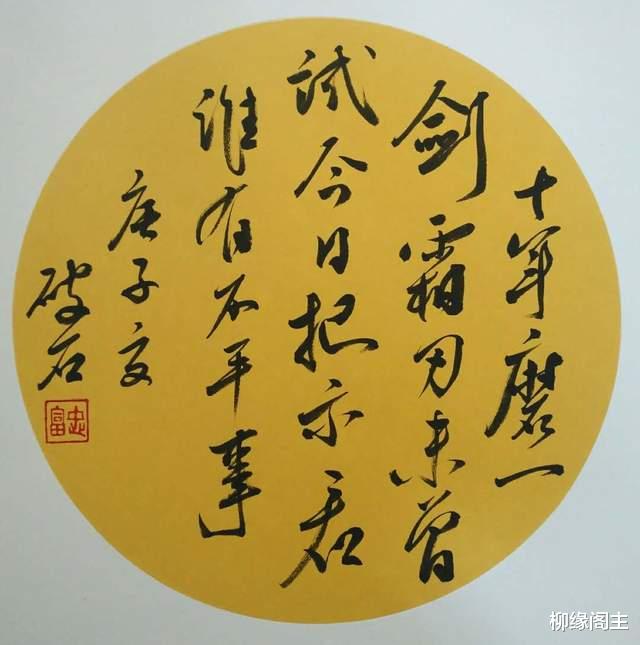 十年磨一
剑霜刃未曾
试今日把示君
谁有不平事
庚子夏
破石
忠富
柳缘阁主